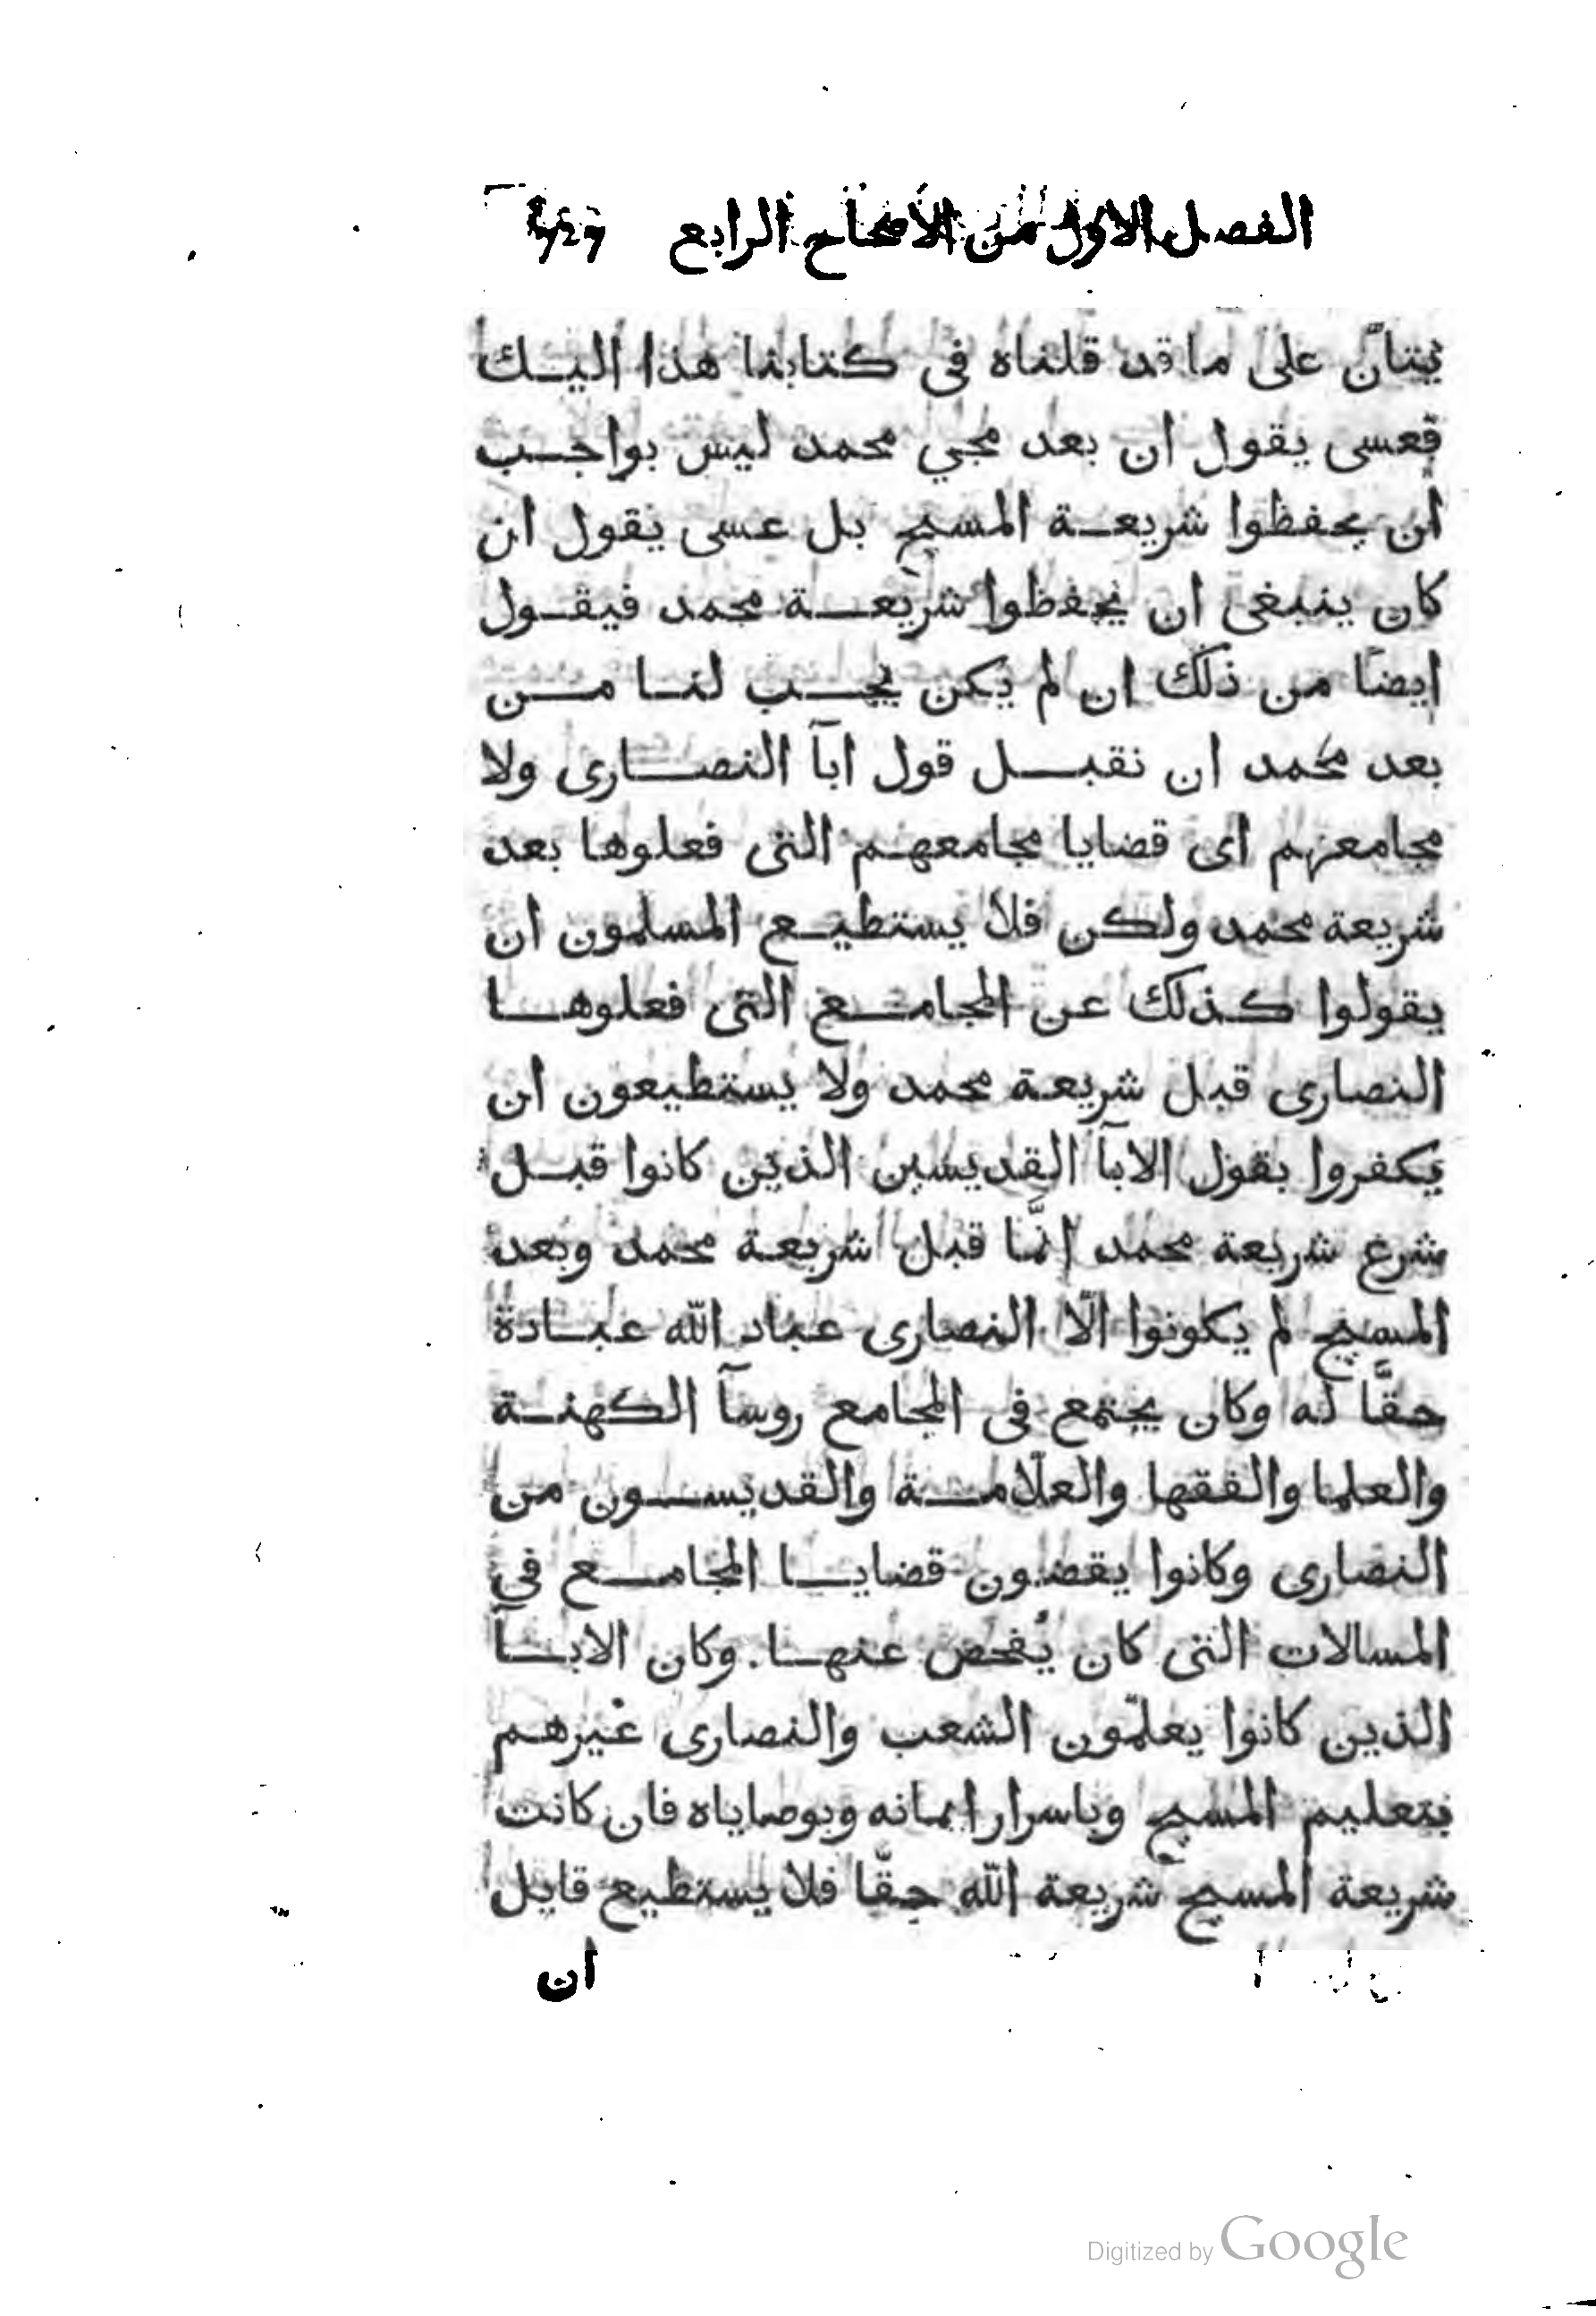 الفصل الاول من الاصحاح الرابع
يتبيّن على ما قد قلناه فى كتابنا هذا اليك
فعسى يقول ان بعد مجي محمد ليس بواجب
ان يحفظوا شريعة المسيح بل عسى يقول ان
كان ينبغى ان يحفظوا شريعة محمد فيقول
ايضًا من ذلك ان لم يكن يجب لنا من
بعد محمد ان نقبل قول ابآ النصارى ولا
مجامعهم اى قضايا مجامعهم التى فعلوها بعد
شريعة محمد ولكن فلا يستطيع المسلمون ان
يقولوا كذلك عن المجامع التى فعلوها
النصارى قبل شريعة محمد ولا يستطيعون ان
يكفروا بقول الابآ القديسين الذين كانوا قبل
شرع شريعة محمد انَّما قبل شريعة محمد وبعد
المسيح لم يكونوا الّا النصارى عباد الله عبادة
حقًّا له وكان يجتمع فى المجامع روسآ الكهنة
والعلما والفقها والعلّامة والقديسون من
النصارى وكانوا يقضون قضايا المجامع فى
المسالات التى كان يُفحص عنها. وكان الابآ
الذين كانوا يعلّمون الشعب والنصارى غيرهم
بتعليم المسيح وباسرار ايمانه وبوصاياه فان كانت
شريعة المسيح شريعة الله حقًّا فلا يستطيع قايل
ان
Digitized by Google